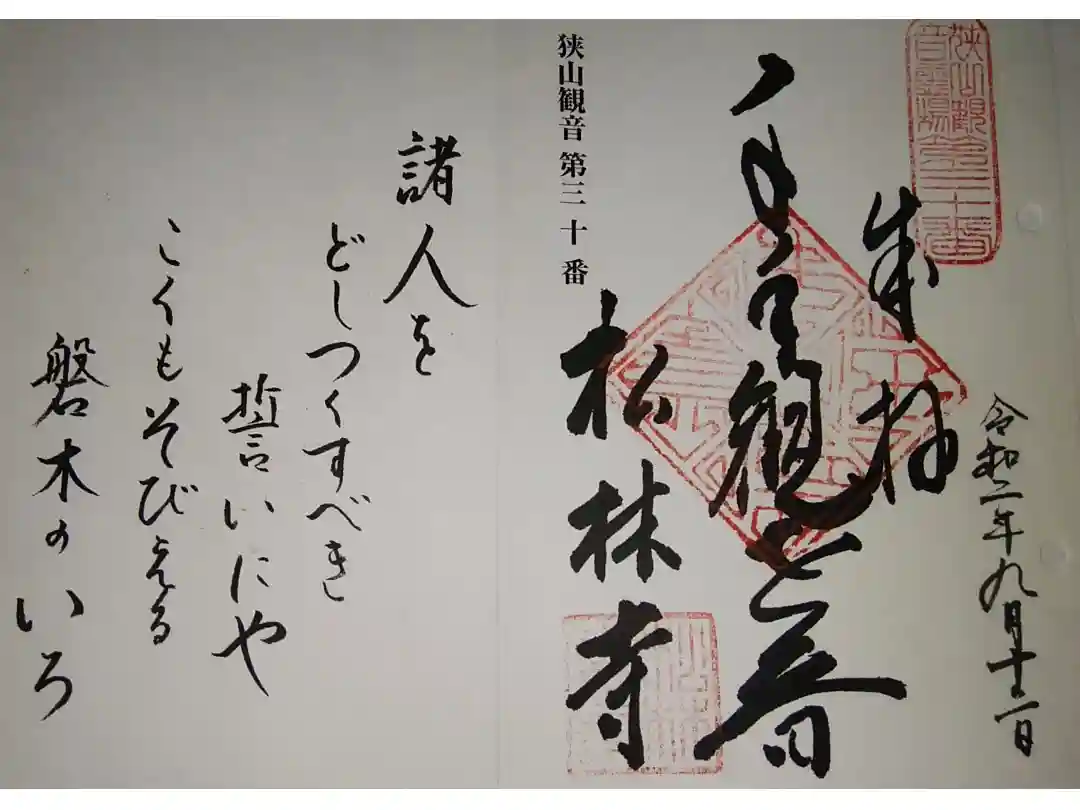 狭山観音霊場第三十番
令和二年九月十二日
奉拝
観世音
狭山観音 第三十番
松林寺
諸人を
どしつくすべき
誓いにや
こくもそびえる
磐木のいろ